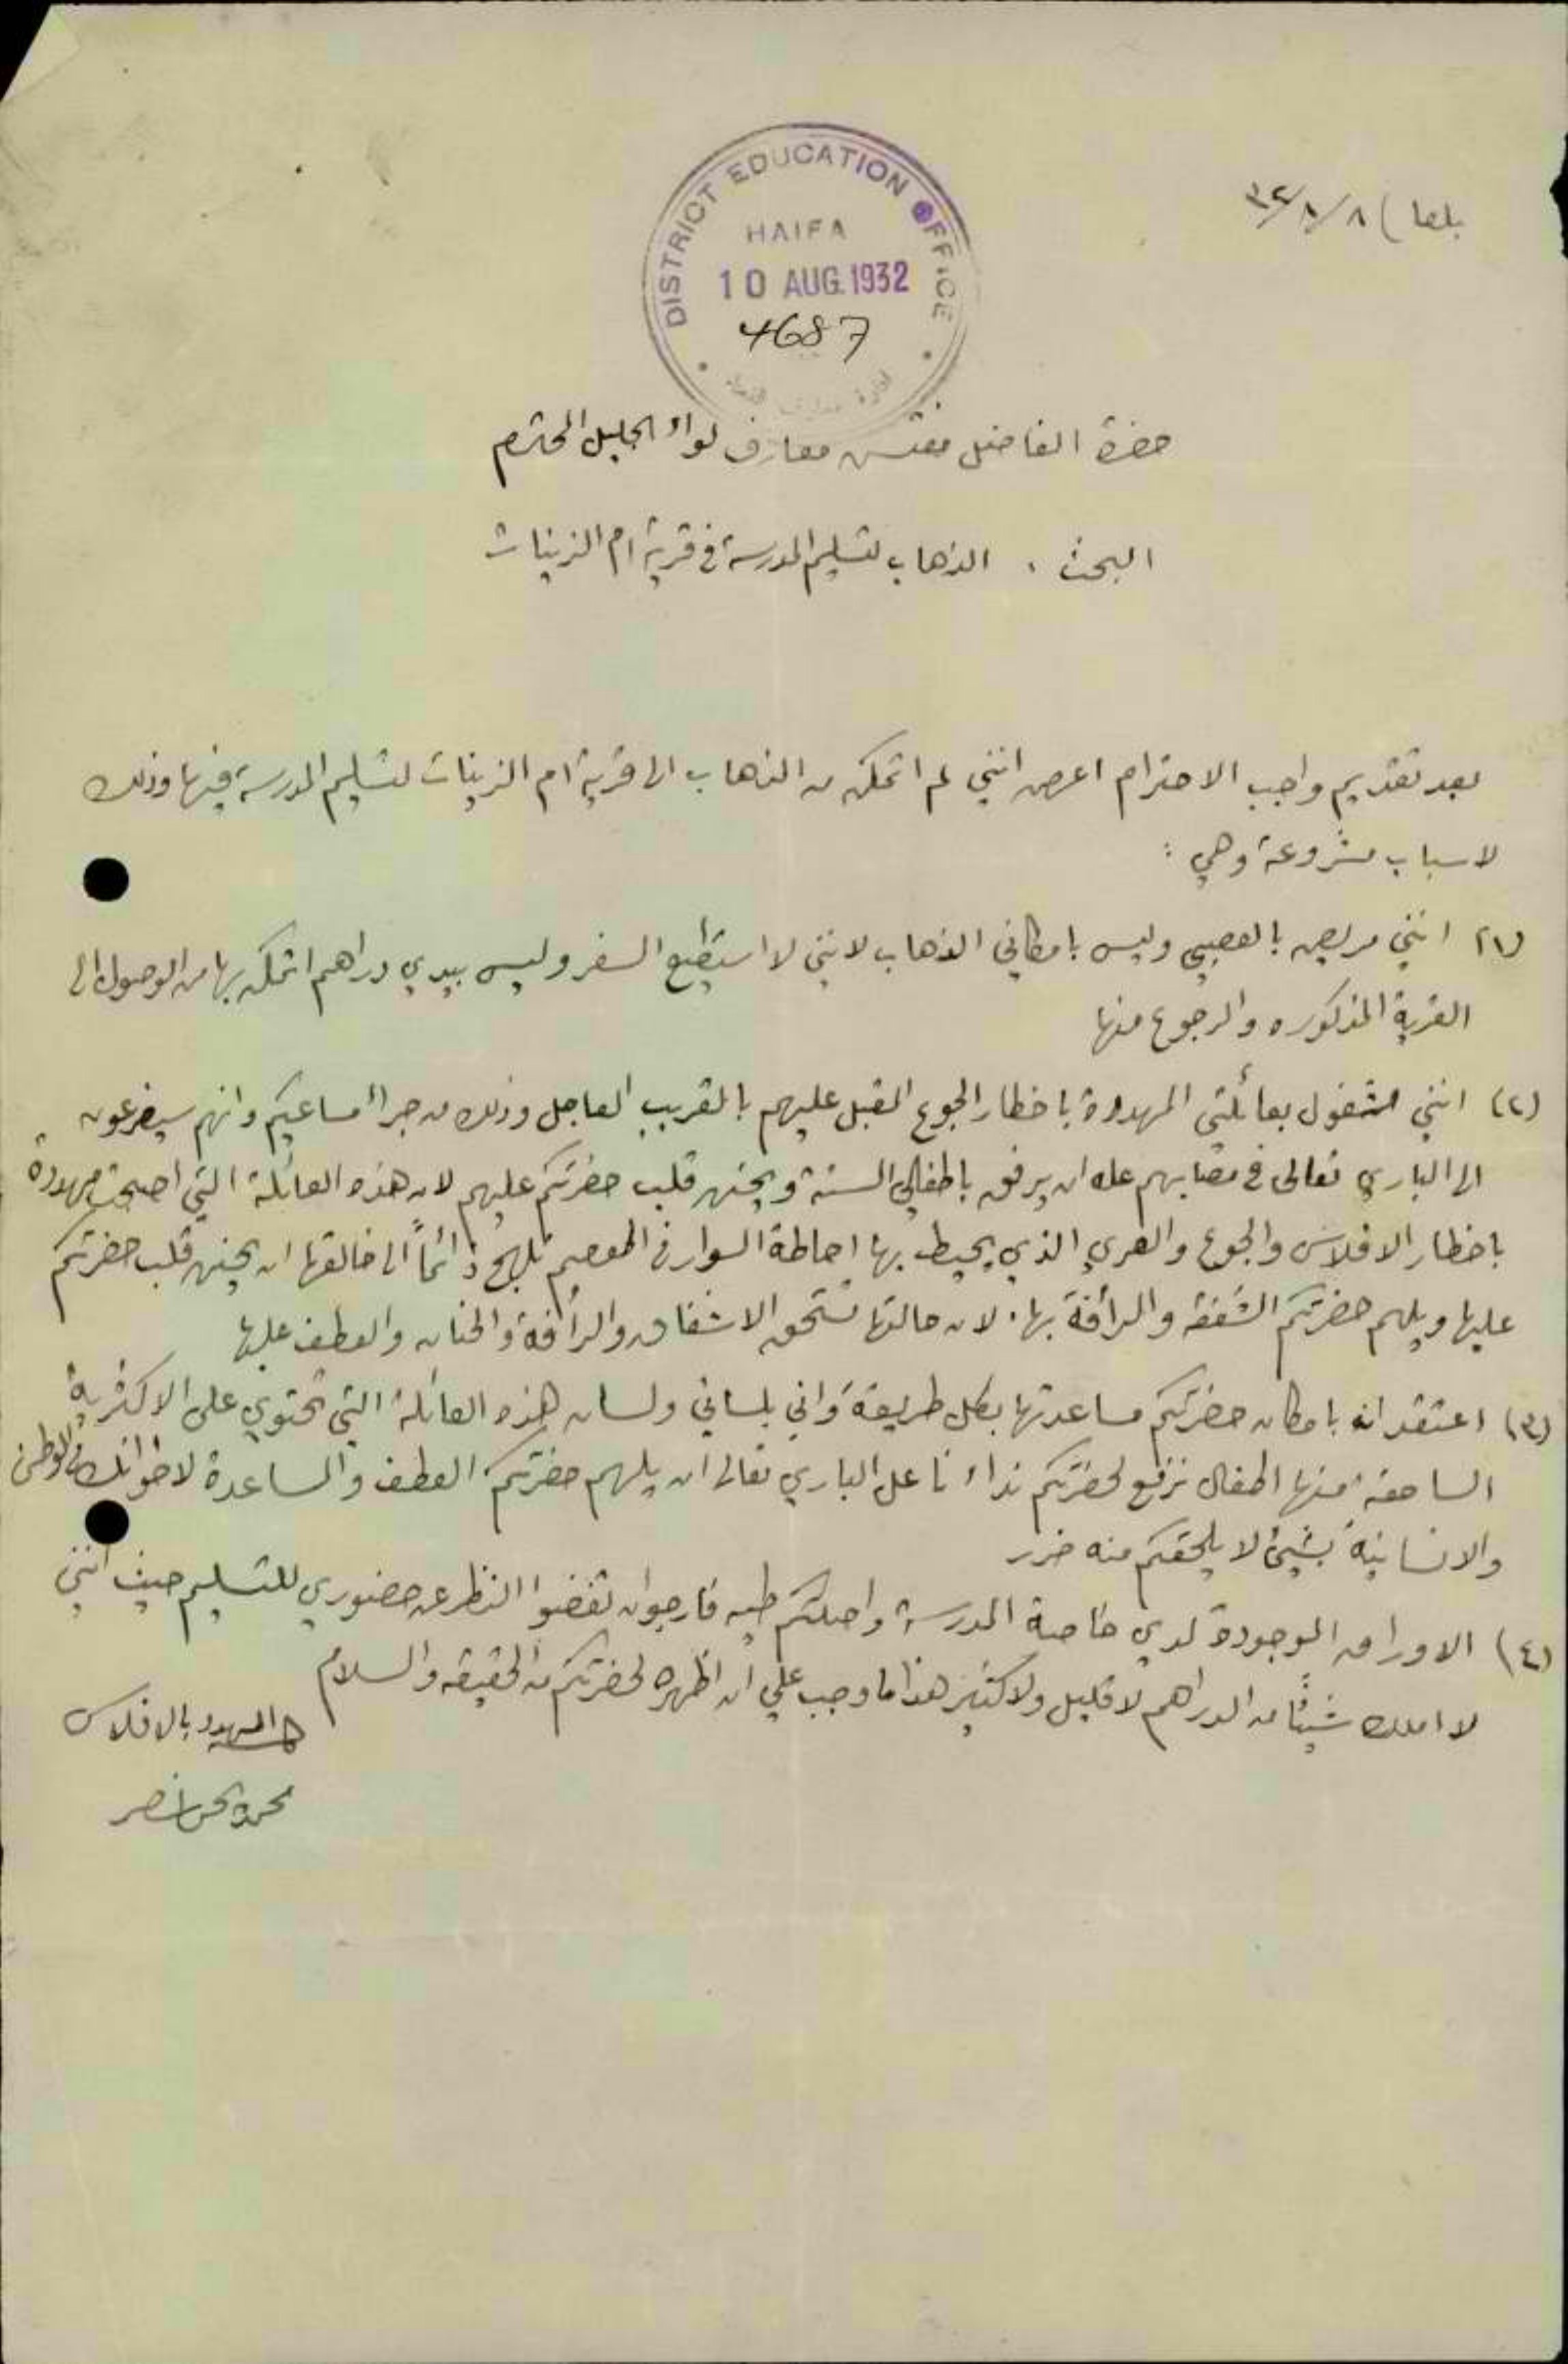 بلعا ) ٨/٨/٣٢
DISTRICT EDUCATION OFFICE
HAIFA
10 AUG. 1932
4687
حضرة الفاضل مفتش معارف لواء الجليل المحترم
البحث . الذهاب لتسليم المدرسة في قرية ام الزينات
بعد تقديم واجب الاحترام اعرض انني لم اتمكن من الذهاب الى قرية ام الزينات لتسليم المدرسة فيها وذلك
لاسباب مشروعة وهي :
(١) انني مريض بالعصبي وليس بامكاني الذهاب لانني لا استطيع السفر وليس بيدي دراهم اتمكن بها من الوصول الى
القرية المذكوره والرجوع منها
(٢) انني مشغول بعائلتي المهددة باخطار الجوع المقبل عليهم بالقريب العاجل وذلك من جراء مساعيكم وانهم سيضرعون
الى الباري تعالى في مصابهم عله ان يرفق باطفالي الستة ويحنن قلب حضرتكم عليهم لان هذه العائلة التي اصبحت مهددة
باخطار الافلاس والجوع والعري الذي يحيط بها احاطة السوار في المعصم تلهج دائماً الى خالقها ان يحنن قلب حضرتكم
عليها ويلهم حضرتكم الشفقة والرأفة بها . لان حالتها تستحق الاشفاق والرأفة والحنان والعطف عليها
(٣) اعتقد انه بامكان حضرتكم مساعدتها بكل طريقة واني بلساني ولسان هذه العائلة التي تحتوي على الاكثرية
الساحقة منها اطفال نرفع لحضرتكم نداءنا عل الباري تعالى ان يلهم حضرتكم العطف والمساعدة لاخوانك في الوطن
والانسانية بشيئ لا يلحقكم منه ضرر
(٤) الاوراق الموجودة لدي خاصة المدرسة واصلتكم طيه فارجو ان تغضوا النظر عن حضوري للتسليم حيث انني
لا املك شيئاً من الدراهم لا قليل ولا كثير هذا ما وجب علي ان اظهره لحضرتكم من الحقيقة والسلام
المهدد بالافلاس